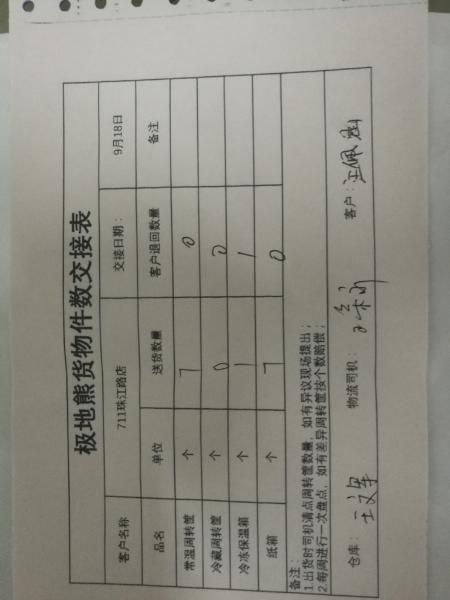 极地熊货物件数交接表
客户名称 711珠江路店 交接日期： 9月18日
品名 单位 送货数量 客户退回数量 备注
常温周转筐 个 7 0
冷藏周转筐 个 0 0
冷冻保温箱 个 1 1
纸箱 个 7 0
备注：
1.出货时司机清点周转筐数量，如有异议现场提出；
2.每周进行一次盘点，如有差异周转筐按个数赔偿；
仓库： 物流司机： 客户：